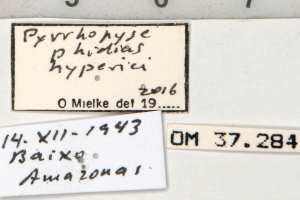 Pyrrhopyge
phidias
hyperici
2016
O Mielke det 19.....
14. XII - 1943
Baixo
Amazonas.
OM 37.284